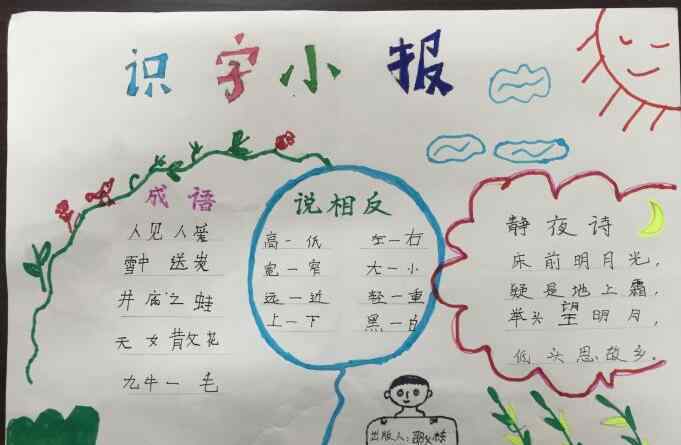 识字小报
成语
人见人爱
雪中送炭
井底之蛙
天女散花
九牛一毛
说相反
高一低 左一右
宽一窄 大一小
远一近 轻一重
上一下 黑一白
静夜诗
床前明月光，
疑是地上霜，
举头望明月，
低头思故乡。
出版人：